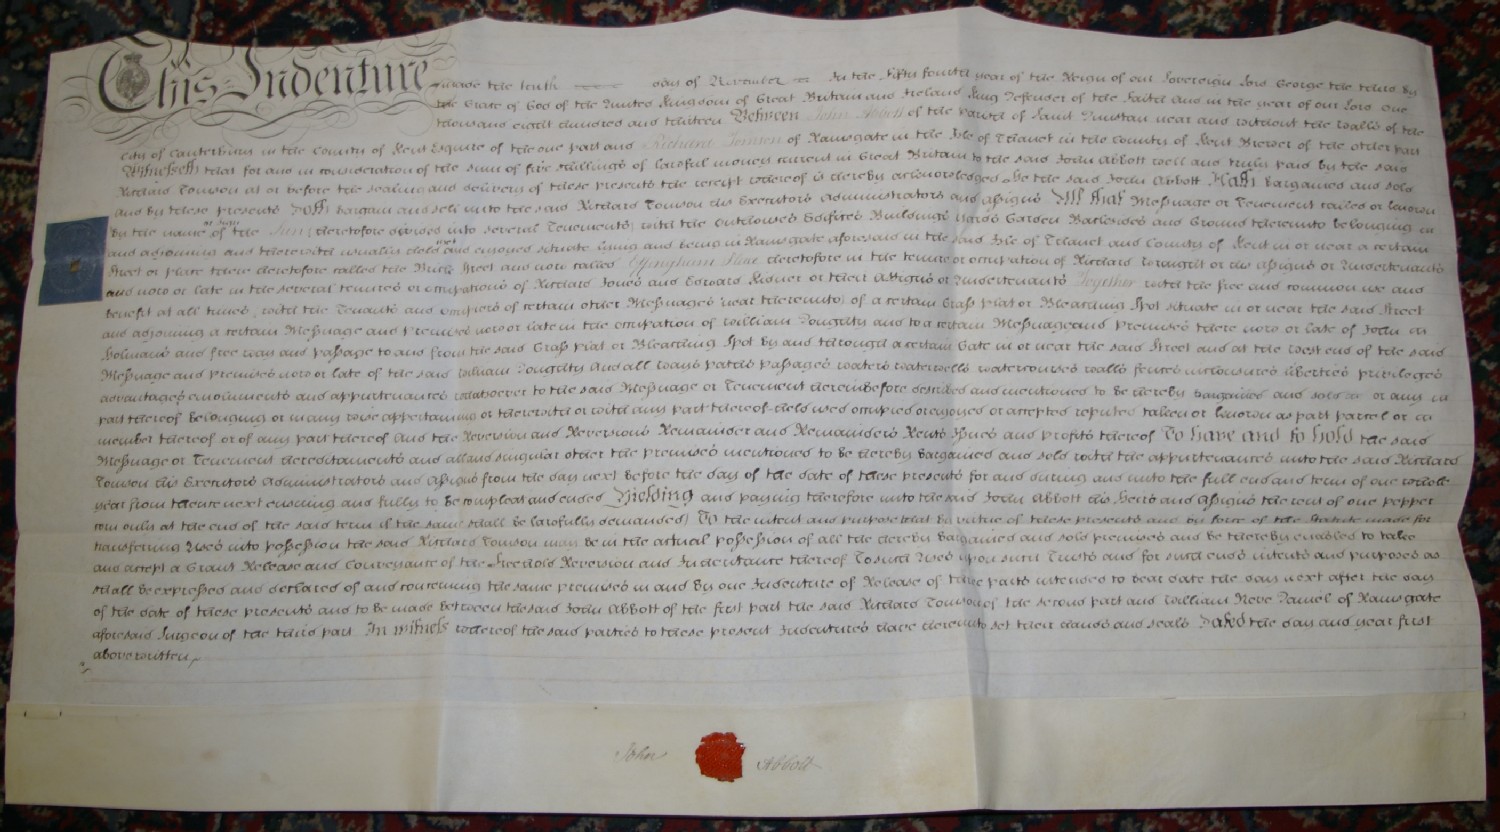 This Indenture made the tenth day of November In the Fifty fourth year of the Reign of our Sovereign Lord George the third by
the Grace of God of the United Kingdom of Great Britain and Ireland King Defender of the Faith and in the year of our Lord One
thousand eight hundred and thirteen Between John Abbott of the parish of Saint Dunstan near and without the Walls of the
City of Canterbury in the County of Kent Esquire of the one part and Richard Tomson of Ramsgate in the Isle of Thanet in the County of Kent Brewer of the other part
Witnesseth that for and in consideration of the sum of five shillings of lawful money current in Great Britain to the said John Abbott well and truly paid by the said
Richard Tomson at or before the sealing and delivery of these presents the receipt whereof is hereby acknowledged He the said John Abbott Hath bargained and sold
and by these presents Doth bargain and sell unto the said Richard Tomson his Executors Administrators and Assigns All that Messuage or Tenement called or known
by the name or sign of the (heretofore divided into several Tenements) with the Outhouses Edifices Buildings Yards Garden Backsides and Ground thereunto belonging in
and adjoining and therewith usually held and enjoyed situate lying and being in Ramsgate aforesaid in the said Isle of Thanet and County of Kent in or near a certain
Street or place there heretofore called the Street and now called Effingham Place heretofore in the tenure or occupation of Richard or his Assigns or Undertenants
and now or late in the several tenures or occupations of Richard Jones and Edward or their Assigns or Undertenants Together with the free and common use and
benefit at all times (with the Tenants and occupiers of certain other Messuages near thereunto) of a certain Grass Plat or Bleaching Spot situate in or near the said Street
and adjoining a certain Messuage and premises now or late in the occupation of William Doughty and to a certain Messuage and premises there now or late of John
Holmans and free way and passage to and from the said Grass Plat or Bleaching Spot by and through a certain Gate in or near the said Street and at the West end of the said
Messuage and premises now or late of the said William Doughty And all ways paths passages waters watercourses walls fences inclosures liberties privileges
advantages emoluments and appurtenances whatsoever to the said Messuage or Tenement hereinbefore described and mentioned to be hereby bargained and sold or any
part thereof belonging or in any wise appertaining or therewith or with any part thereof held used occupied or enjoyed or accepted reputed taken or known as part parcel or
member thereof or of any part thereof And the Reversion and Reversions Remainder and Remainders Rents Issues and profits thereof To have and to hold the said
Messuage or Tenement Hereditaments and all and singular other the premises mentioned to be hereby bargained and sold with the appurtenances unto the said Richard
Tomson his Executors Administrators and Assigns from the day next before the day of the date of these presents for and during and unto the full end and term of one whole
year from thence next ensuing and fully to be compleat and ended Yielding and paying therefore unto the said John Abbott his Heirs and Assigns the rent of one pepper
corn only at the end of the said term if the same shall be lawfully demanded To the intent and purpose that by virtue of these presents and by force of the Statute made for
transferring Uses into possession the said Richard Tomson may be in the actual possession of all the hereby bargained and sold premises and be thereby enabled to take
and accept a Grant Release and Conveyance of the Freehold Reversion and Inheritance thereof To such Uses upon such Trusts and for such ends intents and purposes as
shall be expressed and declared of and concerning the same premises in and by one Indenture of Release of three parts intended to bear date the day next after the day
of the date of these presents and to be made between the said John Abbott of the first part the said Richard Tomson of the second part and William Neve Daniel of Ramsgate
aforesaid Surgeon of the third part In witness whereof the said parties to these present Indentures have hereunto set their hands and seals Dated the day and year first
above written
John Abbott